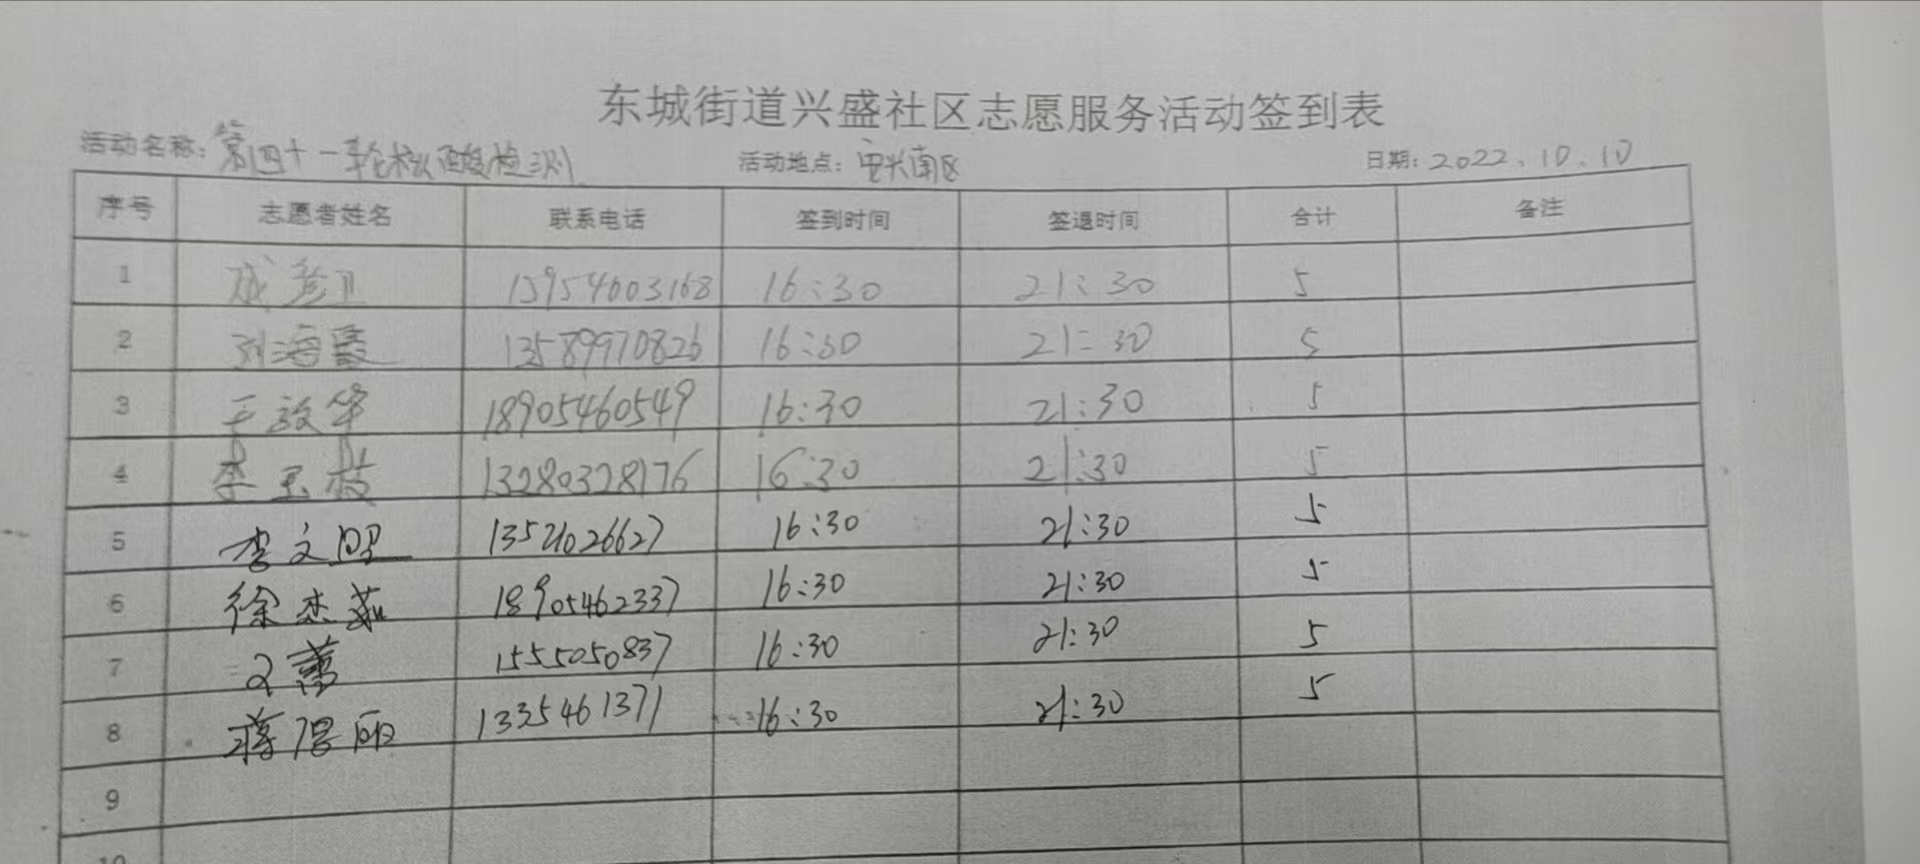 东城街道兴盛社区志愿服务活动签到表
活动名称：第四十一轮核酸检测 活动地点：安兴南区 日期：2022.10.10
序号 志愿者姓名 联系电话 签到时间 签退时间 合计 备注
1 15954603168 16:30 21:30 5
2 刘海霞 13589970826 16:30 21:30 5
3 王放华 18905460549 16:30 21:30 5
4 李玉枝 13280328176 16:30 21:30 5
5 李文明 16:30 21:30 5
6 徐杰茹 18905462337 16:30 21:30 5
7 1555050837 16:30 21:30 5
8 蒋 丽 1335461371 16:30 21:30 5
9
10